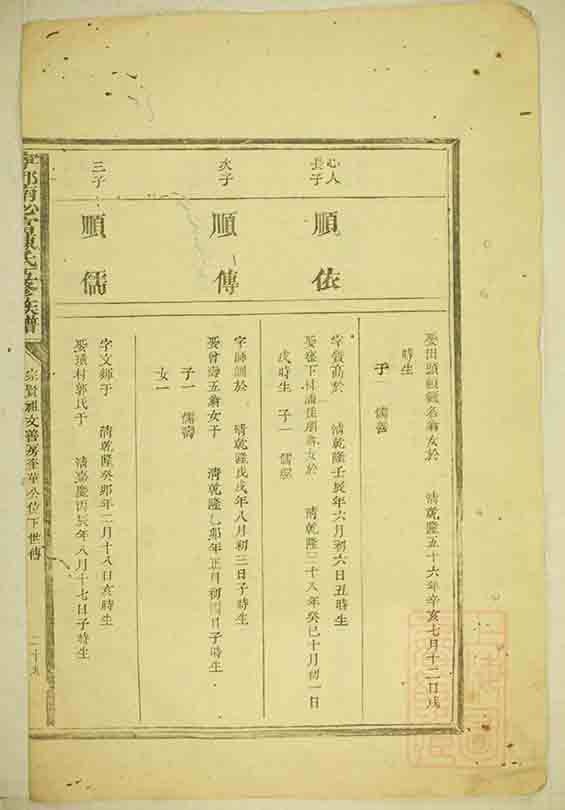 娶田頭 名翁女於 清乾隆五十六年辛亥七月十二日戌
時生
子一 儒善
心人
長子
順依
字 高於 清乾隆壬辰年六月初六日丑時生
娶 下村 翁女於 清乾隆三十八年癸巳十月初一日
戌時生 子一 儒
次子
順傳
字師訓於 清乾隆戊戌年八月初三日子時生
娶曾 五翁女于 清乾隆 卯年正月初四日子時生
子一 儒壽
女一
三子
順儒
字文 于 清乾隆癸卯年二月十八日亥時生
娶 村郭氏于 清嘉慶丙辰年八月十七日子時生
氏五修族譜
宗賢祖文善房奎華公位下世傳
二十九